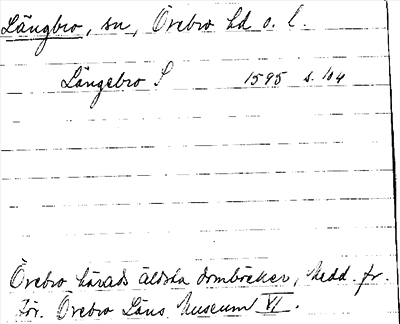 Längbro, sn, Örebro hd o. l.
Längebro S 1595 s. 104
Örebro härads äldsta dombböcker, Medd. fr.
För. Örebro Läns Museum VI.